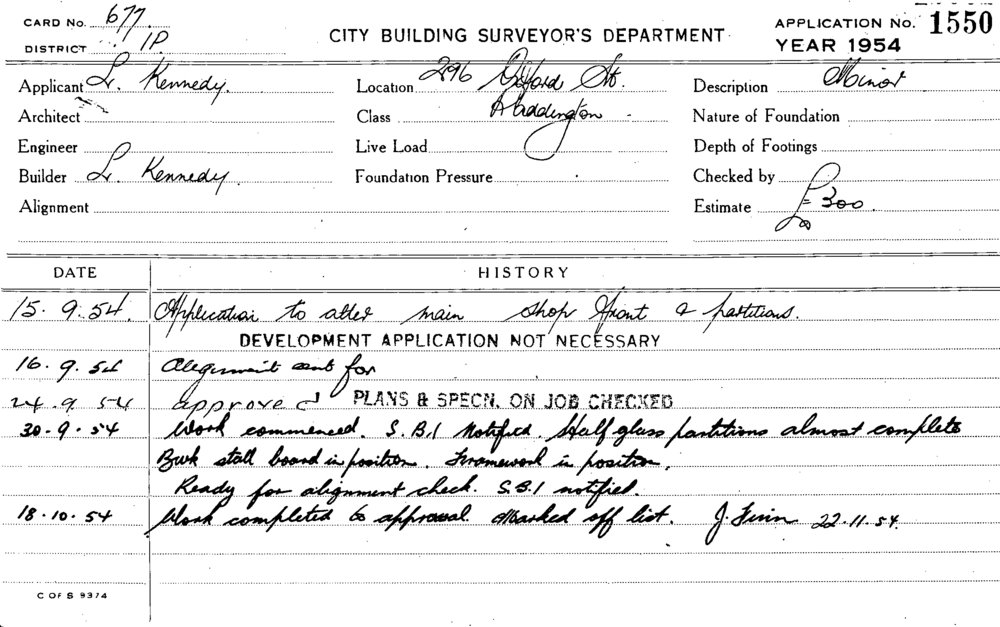 CARD No. 677
DISTRICT 1P.
CITY BUILDING SURVEYOR'S DEPARTMENT
APPLICATION No. 1550
YEAR 1954
Applicant L. Kennedy. Location 296 Oxford St. Description Minor
Architect Class Paddington Nature of Foundation
Engineer Live Load Depth of Footings
Builder L. Kennedy. Foundation Pressure Checked by
Alignment Estimate £300.
DATE HISTORY
15.9.54. Application to alter main shop front & partitions.
DEVELOPMENT APPLICATION NOT NECESSARY
16.9.54 Alignment sent for
24.9.54 approved PLANS & SPECN. ON JOB CHECKED
30-9-54 Work commenced. S.B.I notified. Half glass partitions almost complete
Bwk stall board in position. Framework in position.
Ready for alignment check. S.B.I notified.
18.10.54 Work completed to approval. Marked off list. J. Finn 22.11.54.
C OF S 9374